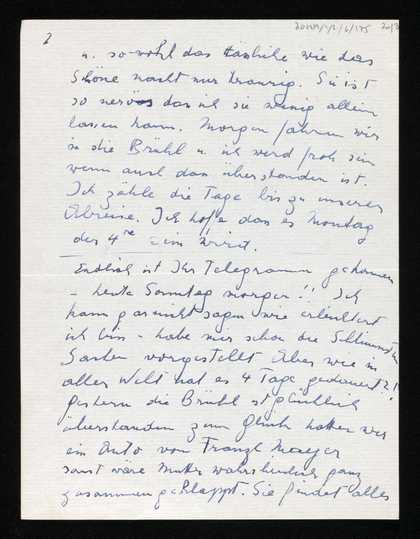 2
u. sowohl das Hässliche wie das
Schöne macht nur traurig. Sie ist
so nervös das ich sie wenig allein
lassen kann. Morgen fahren wir
in die Brühl u. ich werd froh sein
wenn auch das überstanden ist.
Ich zähle die Tage bis zu unserer
Abreise. Ich hoffe das es Montag
der 4te sein wird.
Endlich ist Ihr Telegramm gekommen
– heute Sonntag morgen!! Ich
kann gar nicht sagen wie erleichtert
ich bin – habe mir schon die Schlimmsten
Sachen vorgestellt Aber wie in
aller Welt hat es 4 Tage gedauert?!
Gestern die Brühl ist glücklich
überstanden zum Glück hatten wir
ein Auto von Franzl Mayer
sonst wäre Mutter wahrscheinlich ganz
zusammengeklappt. Sie findet alles